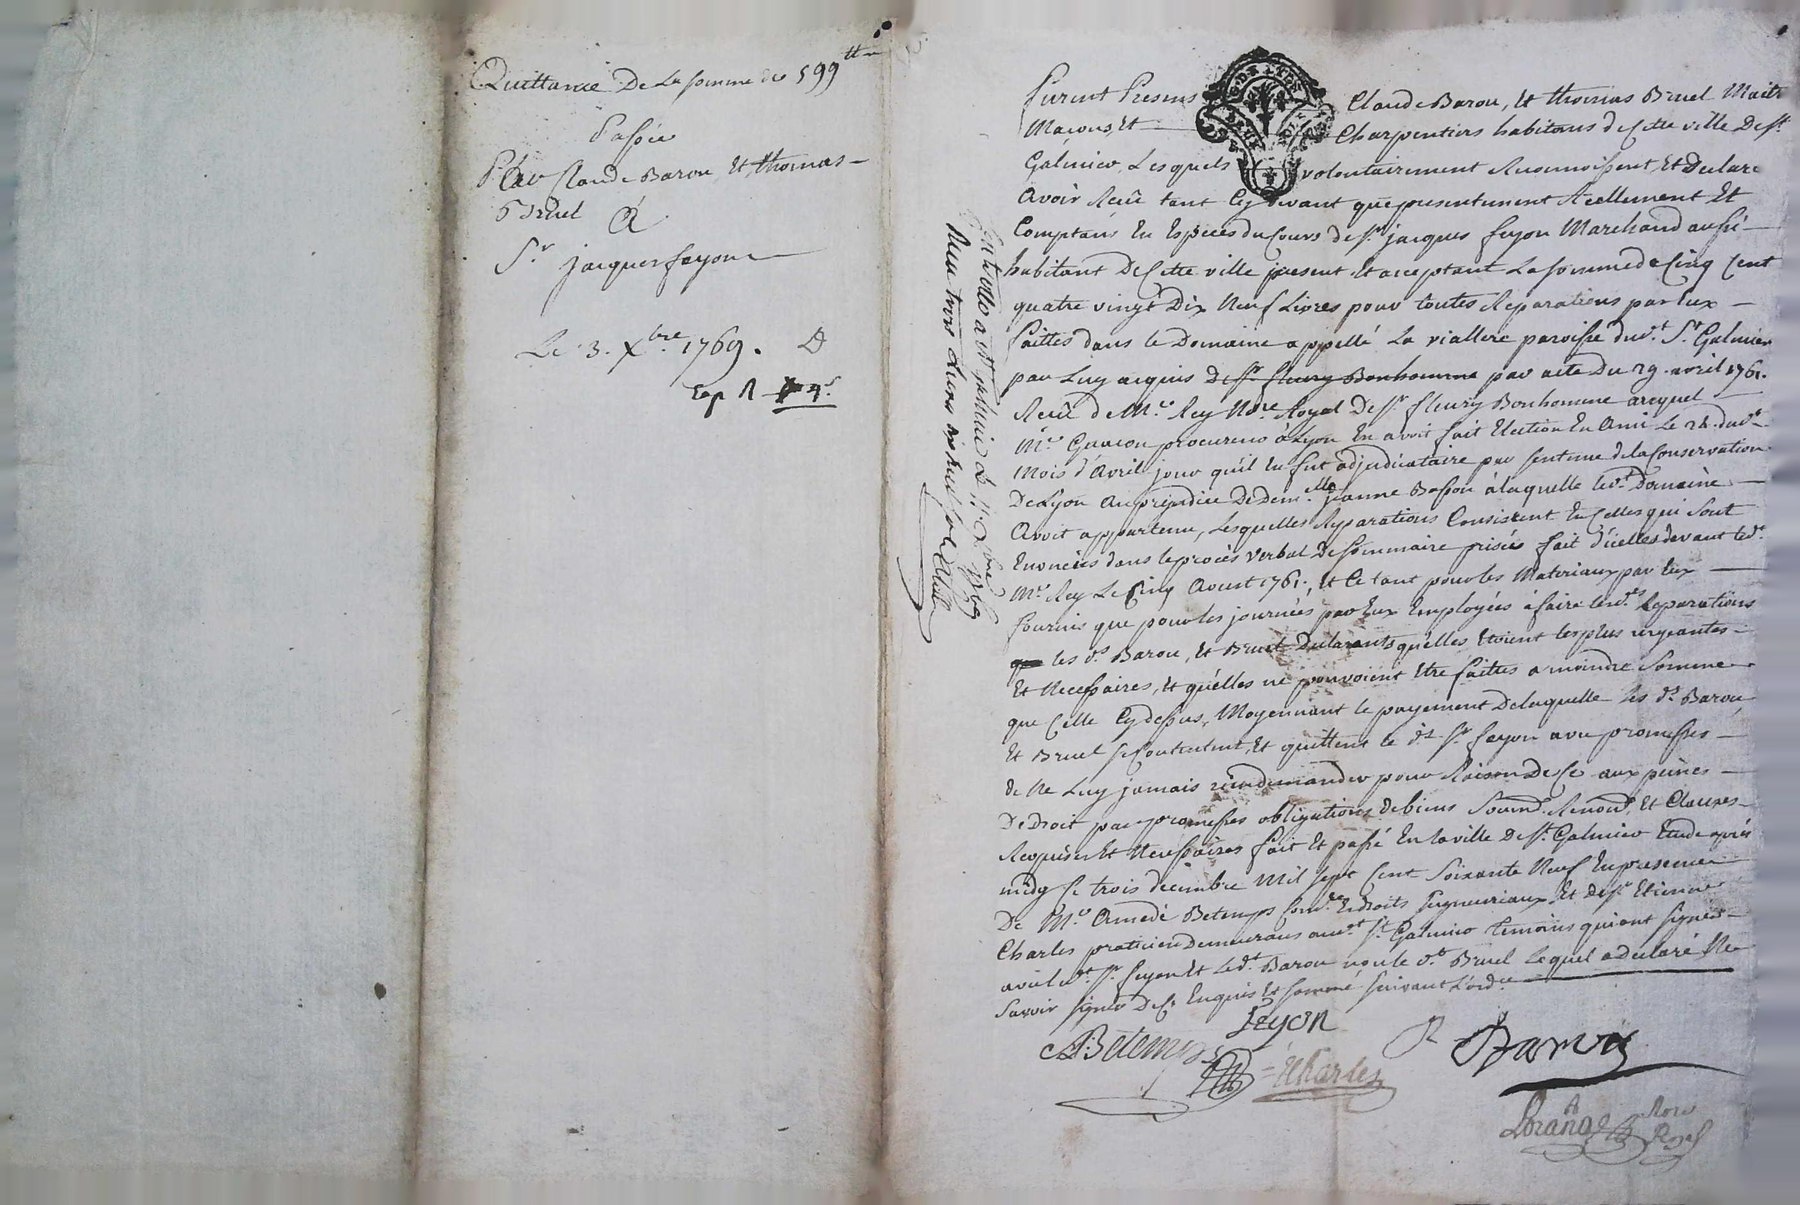 Quittance De La somme de 599tt
Passée
Par Claude Barou, Et thomas
Bruel
A
Sr jacques fayon
Le 3. Xbre 1769.
furent Presens Claude Barou, Et thomas Bruel Maitr
Macons, Et Charpentiers habitans de Cette ville De St
Galmier, Lesquels volontairement Reconnoissent Et Declare
Avoir Receu tant Cy devant que presentement Reellement Et
Comptant En Especes du Cours de Sr jacques feyon Marchand aussi
habitant De Cette ville present et acceptant La somme de Cinq Cent
quatre vingt Dix Neuf Livres pour toutes Reparations par Eux
faittes dans le Domaine appellé La viallere paroisse dud.t St Galmier
par Luy acquis De Sr fleury Bonhomme par acte Du 29. avril 1761.
Receu de Me Rey No.re Royal De Sr fleury Bonhomme auquel
Me procureur à Lyon En avoit fait Election En Ami Le dud.t
Mois d'Avril jour qu'il En fut adjudicataire par sentence de la Conservation
De Lyon Au prejudice De Dem.elle jeanne Basson à laquelle led.t Domaine
Avoit appartenu, Lesquelles Reparations Consistent En Celles qui sont
Enoncées dans le procès verbal De sommaire prisée fait d'icelles devant led.t
Me Rey Le Cinq Aoust 1761; Et Ce tant pour les Materiaux par Eux
fournis que pour les journées par Eux Employées à faire lesd.ts Reparations
les d.s Barou, Et Bruel Declarants qu'elles Etoient les plus urgeantes
Et Necessaires, Et qu'elles ne pouvoient Etre faittes a moindre Somme
que Celle Cy dessus, Moyennant le payement De laquelle les d.s Barou
Et Bruel se Contentent, Et quittent le d.t Sr feyon avec promesses
de Ne Luy jamais rien demander pour Raison De Ce aux peines
De Droit par promesses obligations de biens Soumd. Renond. Et Clauses
Requises Et Necessaires fait Et passé En la ville De St Galmier Etude après
midy Ce trois decembre Mil sept Cent Soixante Neuf En presence
De Me Amedé Betemps Com.re En droits seigneuriaux, Et De Sr Etienne
Charles praticien Demeurans aud.t St Galmier temoins qui ont signés
avec led.t Sr feyon Et Led.t Barou non le d.t Bruel Lequel a Declaré Ne
Savoir signer De Ce Enquis Et sommé suivant L'ord.ce
feyon
ABetemps
ECharles
Barou